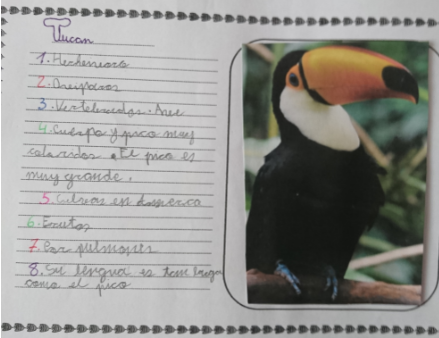 Tucan
1. Herbívoros
2. Ovíparos
3. Vertebrados. Ave
4. Cuerpo y pico muy
coloridos. El pico es
muy grande.
5. en
6. Frutos
7. Por pulmones
8. Su lengua es tan larga
como el pico